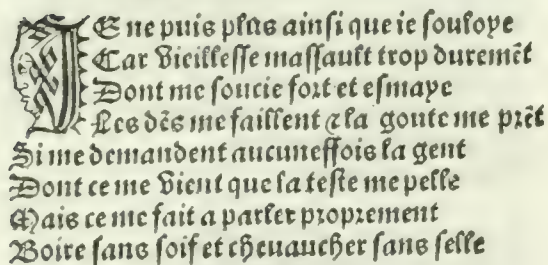 IE ne puis plus ainsi que ie souloye
Car Vieillesse massault trop duremẽt
Dont me soucie fort et esmaye
Les dẽs me faillent ⁊ la goute me prẽt
Si me demandent aucuneffois la gent
Dont ce me Vient que la teste me pelle
Mais ce me fait a parler proprement
Boire sans soif et cheuaucher sans selle